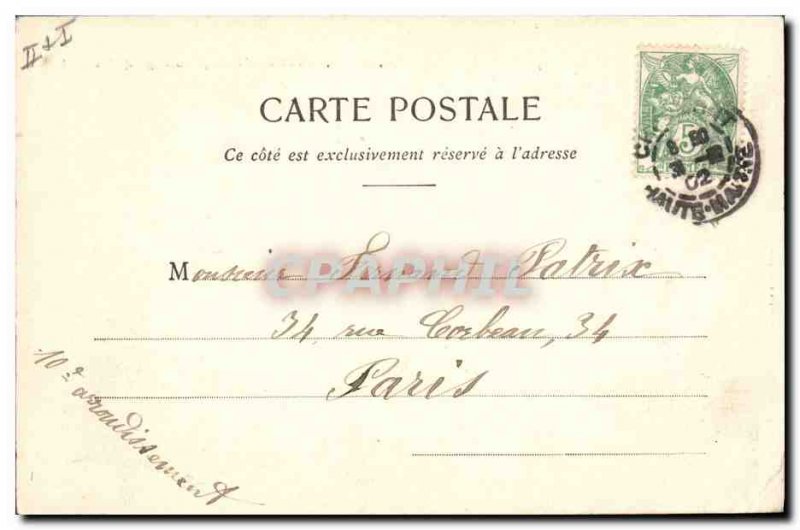 II + I
CARTE POSTALE
Ce côté est exclusivement réservé à l'adresse
5
02
HAUTE-MARNE
Monsieur Fernand Patrix
CPAPHIL
34, rue Corbeau, 34
Paris
10e arrondissement